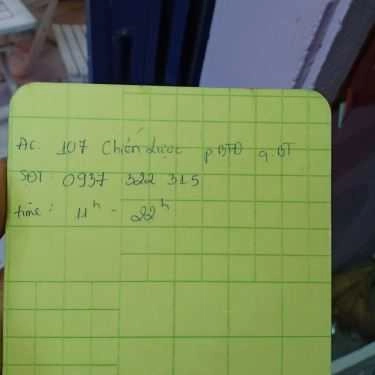 ĐC: 107 Chiến Lược p BTĐ q. BT
SĐT: 0937 322 315
time: 11h - 22h